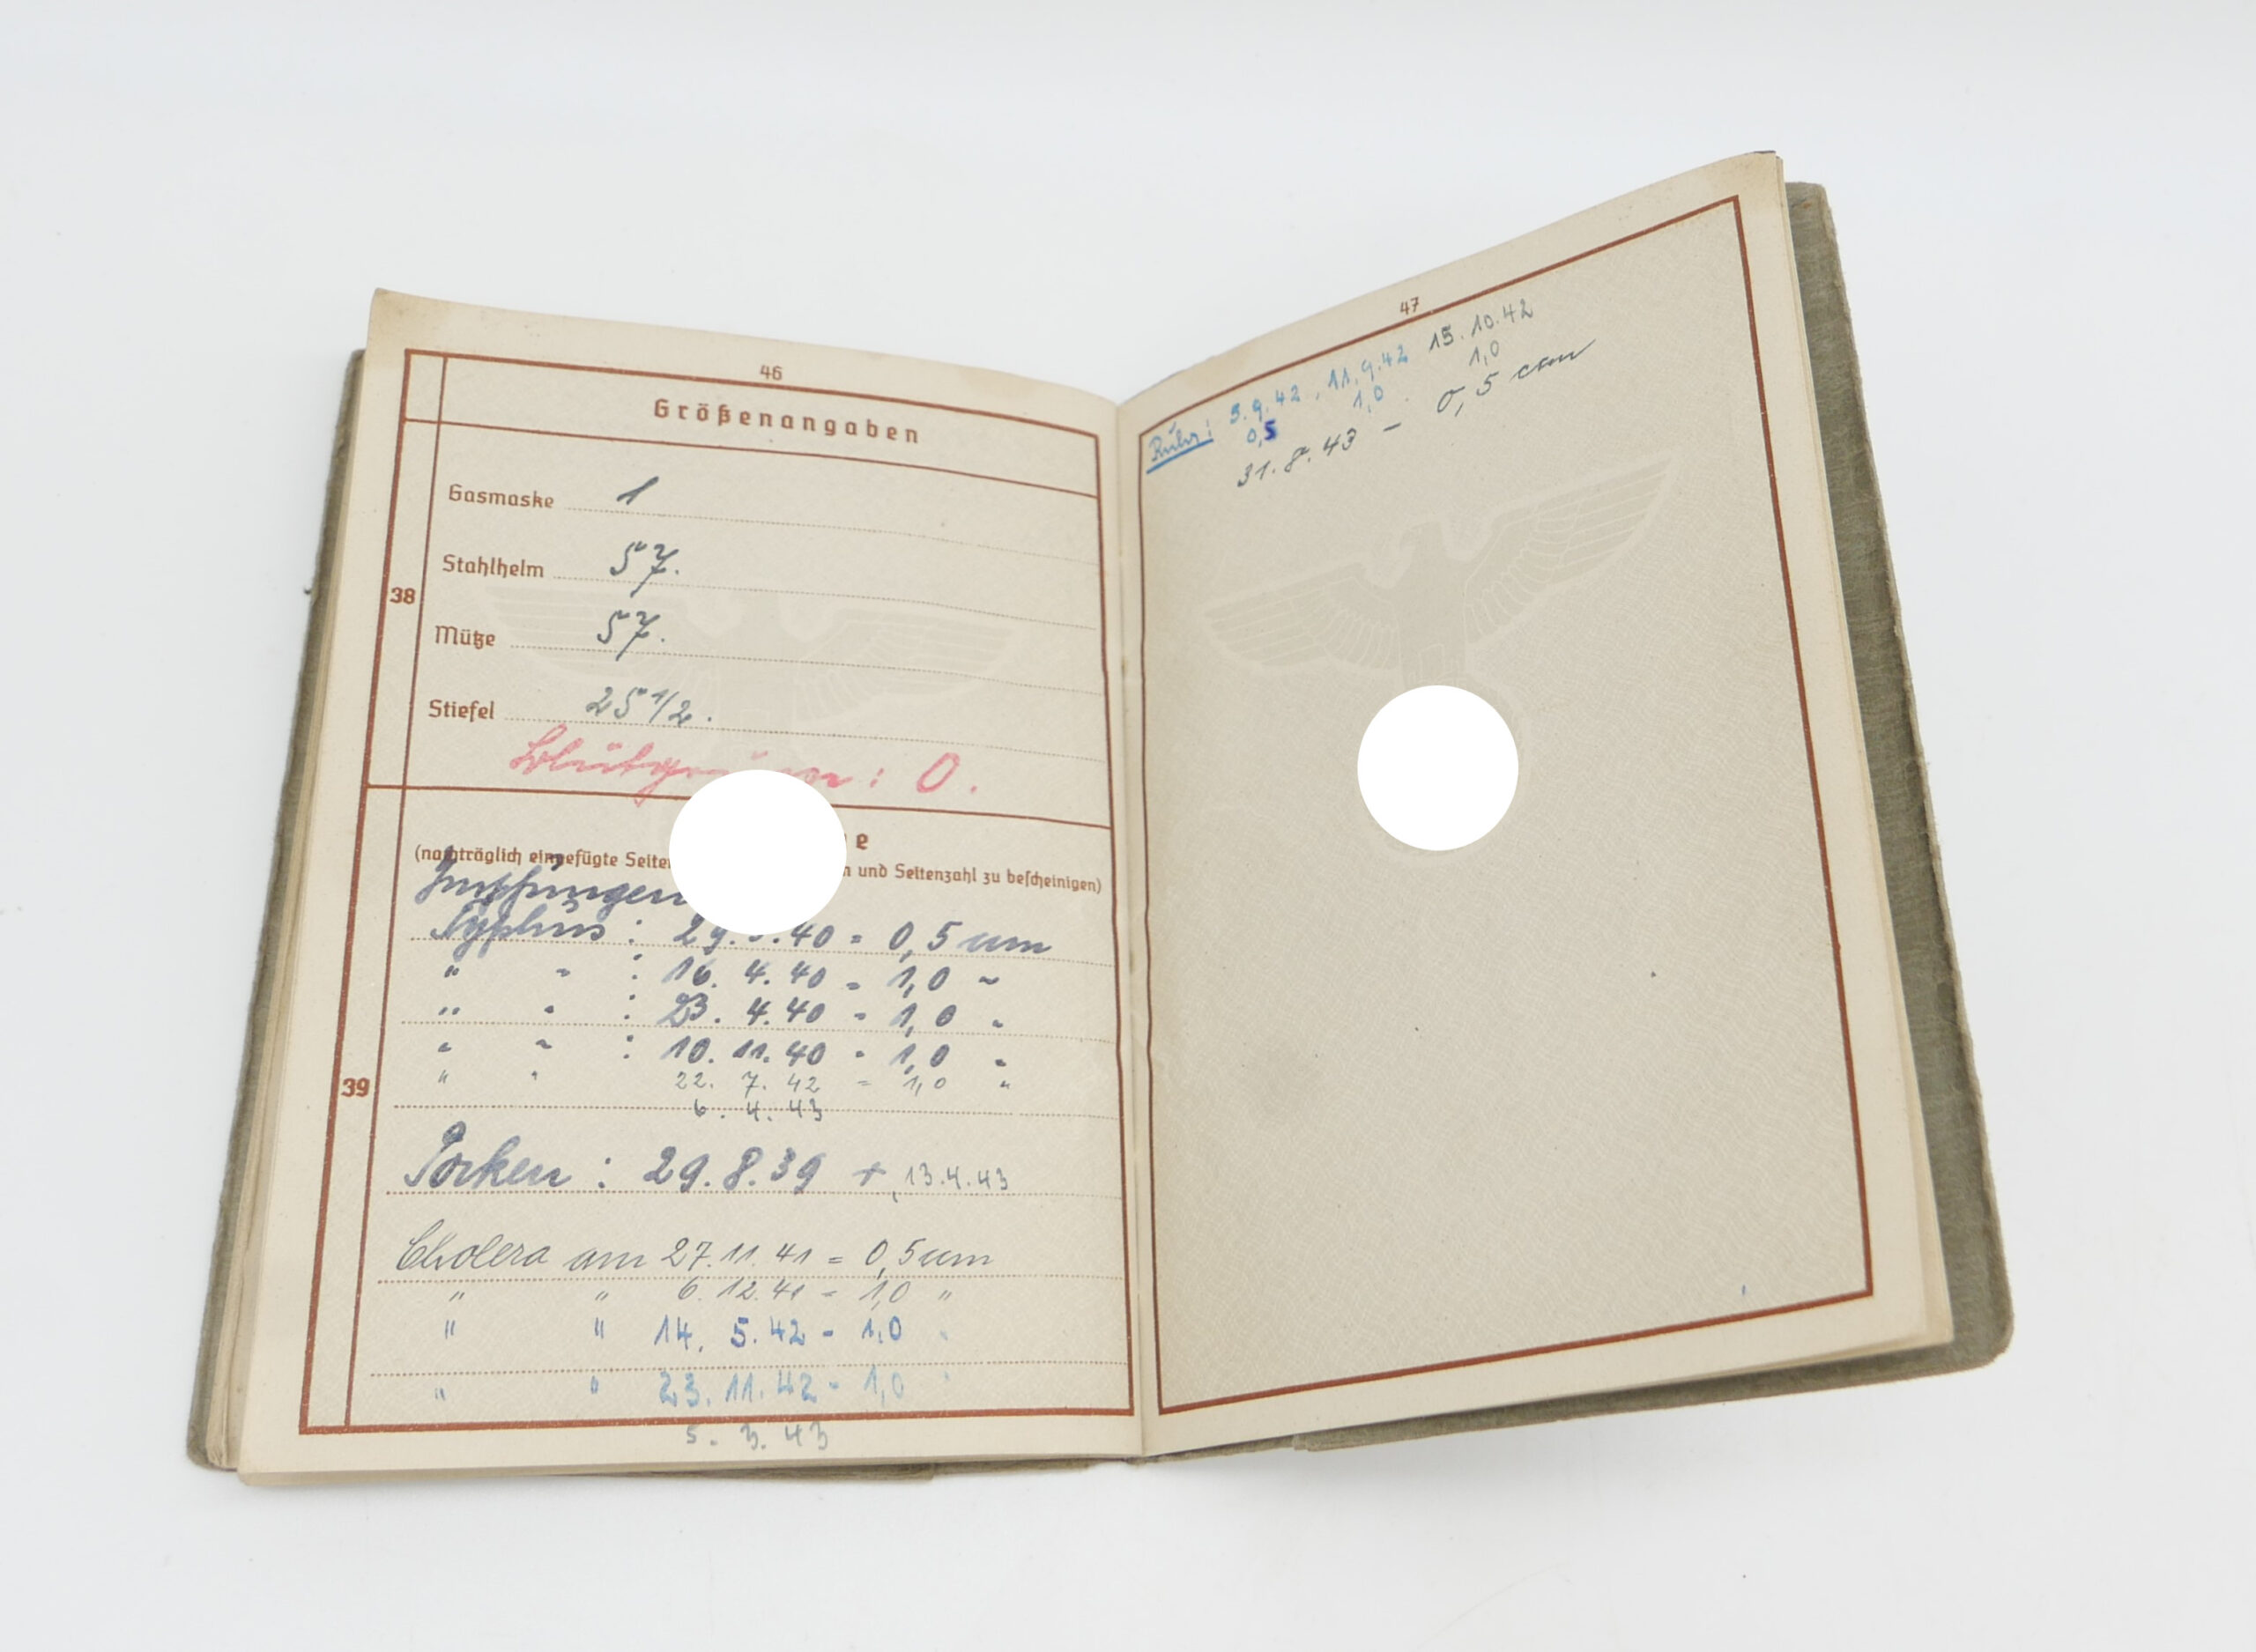 46
Größenangaben
38
Gasmaske 1
Stahlhelm 57.
Mütze 57.
Stiefel 25 1/2.
: 0.
e
(nachträglich eingefügte Seiten und Seitenzahl zu bescheinigen)
39
Impfungen
Typhus : 29. .40 = 0,5 ccm
" " : 16. 4. 40 = 1,0 "
" " : 23. 4. 40 = 1,0 "
" " : 10. 11. 40 = 1,0 "
" " 22. 7. 42 = 1,0 "
6. 4. 43
Pocken : 29.8.39 +, 13.4.43
Cholera am 27.11.41 = 0,5 ccm
" " 6.12.41 = 1,0 "
" " 14. 5. 42 - 1,0 "
" " 23. 11. 42 - 1,0 "
5. 3. 43
47
Ruhr: 3.9.42, 11.9.42 15.10.42
0,5 1,0 1,0
31.8.43 - 0,5 ccm